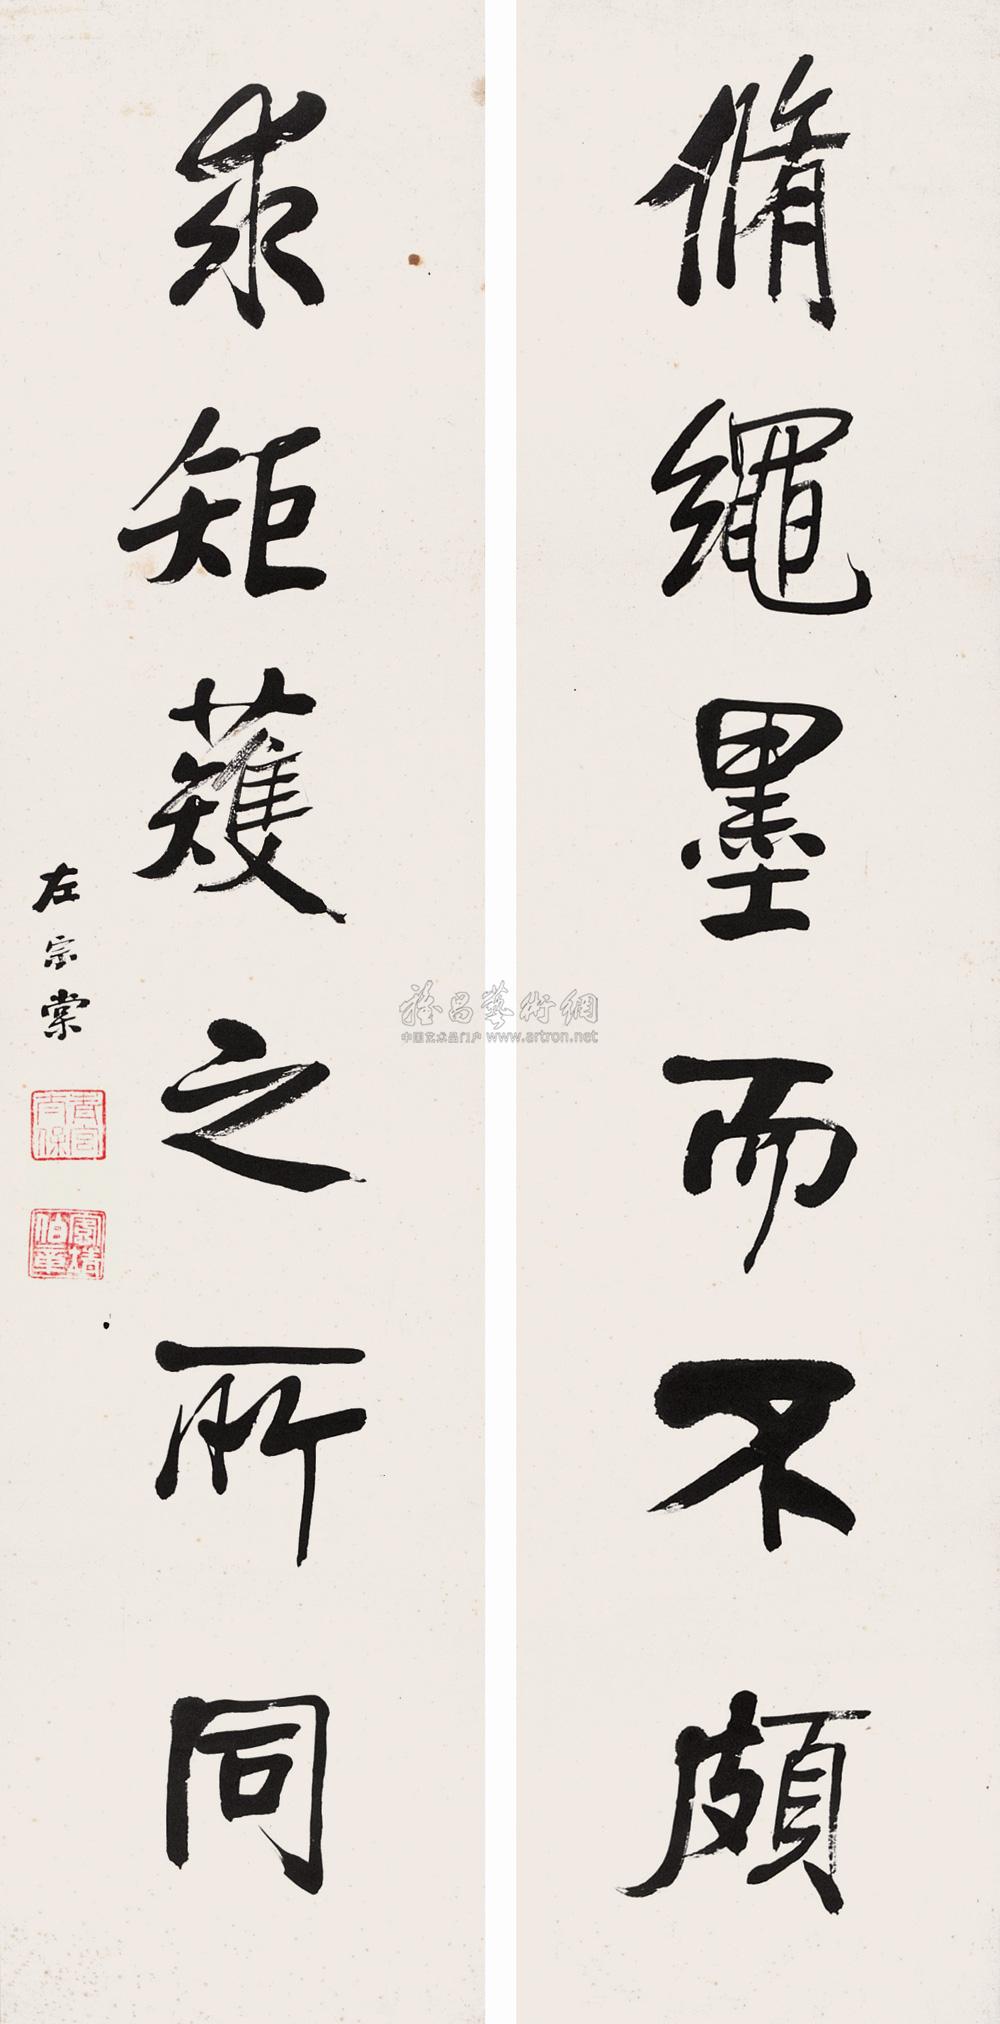 脩繩墨而不頗
求矩蒦之所同
左宗棠
青宮太保
雅昌藝術網
中国艺术品门户 www.artron.net